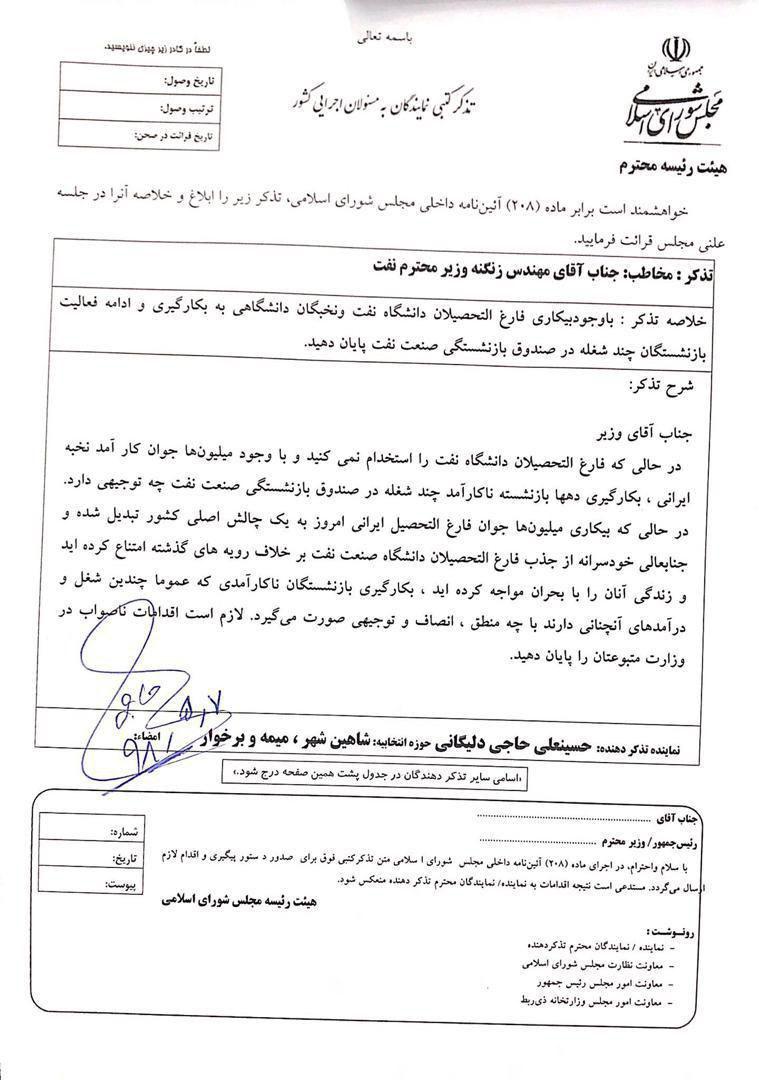 باسمه تعالی
جمهوری اسلامی ایران
مجلس شورای اسلامی
تذکر کتبی نمایندگان به مسئولان اجرایی کشور
لطفاً در کادر زیر چیزی ننویسید.
تاریخ وصول:
ترتیب وصول:
تاریخ قرائت در صحن:
هیئت رئیسه محترم
خواهشمند است برابر ماده (۲۰۸) آئین‌نامه داخلی مجلس شورای اسلامی، تذکر زیر را ابلاغ و خلاصه آنرا در جلسه
علنی مجلس قرائت فرمایید.
تذکر : مخاطب: جناب آقای مهندس زنگنه وزیر محترم نفت
خلاصه تذکر : باوجودبیکاری فارغ التحصیلان دانشگاه نفت ونخبگان دانشگاهی به بکارگیری و ادامه فعالیت
بازنشستگان چند شغله در صندوق بازنشستگی صنعت نفت پایان دهید.
شرح تذکر:
جناب آقای وزیر
در حالی که فارغ التحصیلان دانشگاه نفت را استخدام نمی کنید و با وجود میلیون‌ها جوان کار آمد نخبه
ایرانی ، بکارگیری دهها بازنشسته ناکارآمد چند شغله در صندوق بازنشستگی صنعت نفت چه توجیهی دارد.
در حالی که بیکاری میلیون‌ها جوان فارغ التحصیل ایرانی امروز به یک چالش اصلی کشور تبدیل شده و
جنابعالی خودسرانه از جذب فارغ التحصیلان دانشگاه صنعت نفت بر خلاف رویه های گذشته امتناع کرده اید
و زندگی آنان را با بحران مواجه کرده اید ، بکارگیری بازنشستگان ناکارآمدی که عموما چندین شغل و
درآمدهای آنچنانی دارند با چه منطق ، انصاف و توجیهی صورت می‌گیرد. لازم است اقدامات ناصواب در
وزارت متبوعتان را پایان دهید.
نماینده تذکر دهنده: حسینعلی حاجی دلیگانی حوزه انتخابیه: شاهین شهر ، میمه و برخوار امضاء:
«اسامی سایر تذکر دهندگان در جدول پشت همین صفحه درج شود.»
جناب آقای ..........................................
رئیس‌جمهور/ وزیر محترم ..............................
شماره:
تاریخ:
پیوست:
با سلام واحترام، در اجرای ماده (۲۰۸) آئین‌نامه داخلی مجلس شورای ا سلامی متن تذکرکتبی فوق برای صدور د ستور پیگیری و اقدام لازم
ارسال می‌گردد. مستدعی است نتیجه اقدامات به نماینده/ نمایندگان محترم تذکر دهنده منعکس شود.
هیئت رئیسه مجلس شورای اسلامی
رونوشت:
- نماینده / نمایندگان محترم تذکردهنده
- معاونت نظارت مجلس شورای اسلامی
- معاونت امور مجلس رئیس جمهور
- معاونت امور مجلس وزارتخانه ذی‌ربط